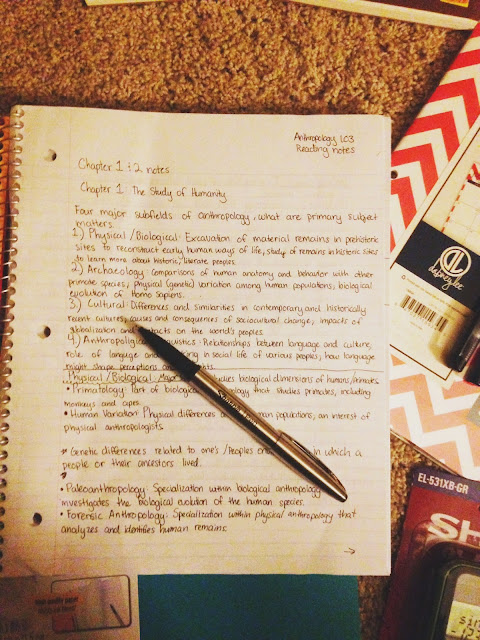 Anthropology 1C3
Reading notes
Chapter 1 + 2 notes
Chapter 1 The Study of Humanity
Four major subfields of anthropology, what are primary subject
matters.
1) Physical / Biological: Excavation of material remains in prehistoric
sites to reconstruct early human ways of life; study of remains in historic sites
to learn more about historic, literate peoples.
2) Archaeology: Comparisons of human anatomy and behavior with other
primate species; physical (genetic) variation among human populations; biological
evolution of Homo Sapiens.
3) Cultural: Differences and similarities in contemporary and historically
recent cultures; causes and consequences of sociocultural change; impacts of
globalization and on the world's peoples.
4) Relationships between language and culture;
role of languge and in social life of various peoples; how language
might shape perceptions
Physical / Biological: studies biological dimensions of humans/primates
• Primatology: Part of that studies primates, including
monkeys and apes.
• Human Variation: Physical differences populations; an interest of
physical anthropologists.
Genetic differences related to one's /Peoples in which a
people or their ancestors lived.
• Paleoanthropology: Specialization within biological anthropology
investigates the biological evolution of the human species.
• Forensic Anthropology: Specialization within physical anthropology that
analyzes and identifies human remains.
→
EL-531XB-GR
SH